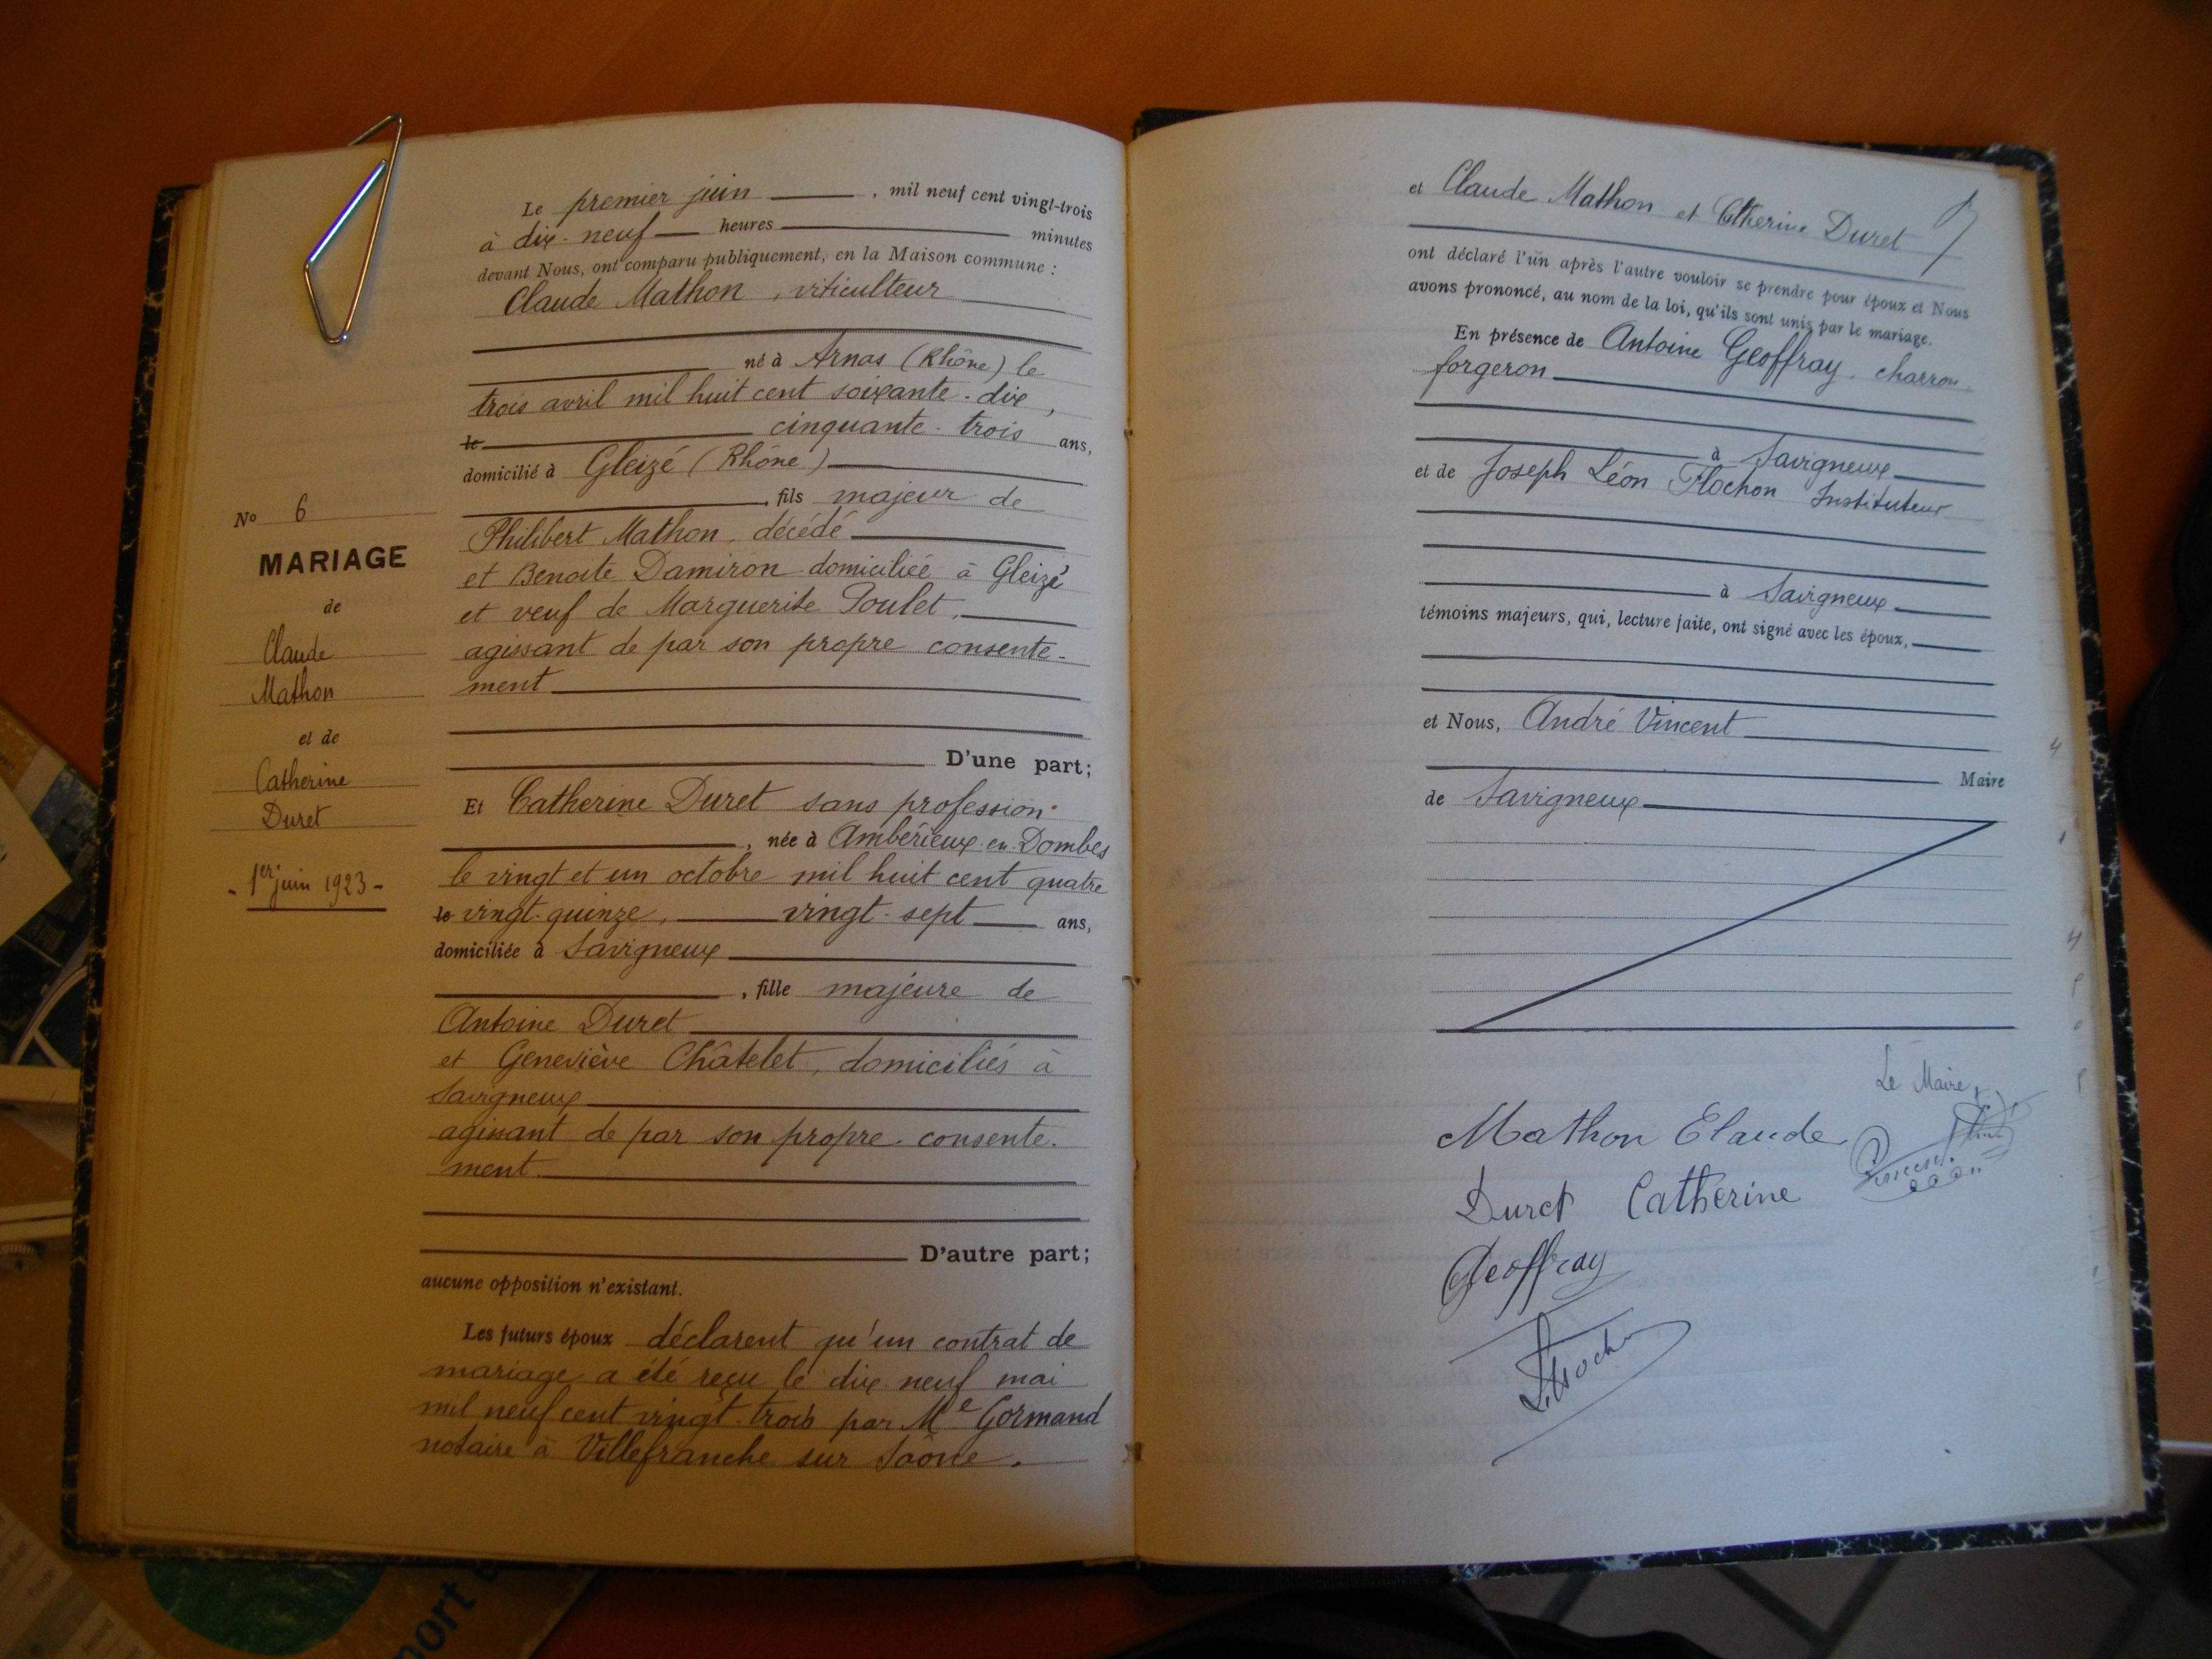 Le premier juin , mil neuf cent vingt-trois
à dix-neuf heures minutes
devant Nous, ont comparu publiquement, en la Maison commune :
Claude Mathon, viticulteur
né à Arnas (Rhône) le
trois avril mil huit cent soixante-dix,
le cinquante-trois ans,
domicilié à Gleizé (Rhône)
, fils majeur de
Philibert Mathon, décédé
et Benoite Damiron domiciliée à Gleizé
et veuf de Marguerite Poulet,
agissant de par son propre consente-
ment
D'une part;
Et Catherine Duret sans profession
, née à Ambérieux-en-Dombes
le vingt et un octobre mil huit cent quatre
le vingt-quinze, vingt-sept ans,
domiciliée à Savigneux
, fille majeure de
Antoine Duret
et Geneviève Châtelet, domiciliés à
Savigneux
agissant de par son propre consente-
ment.
D'autre part;
aucune opposition n'existant.
Les futurs époux déclarent qu'un contrat de
mariage a été reçu le dix-neuf mai
mil neuf cent vingt-trois par Me Gormand
notaire à Villefranche sur Saône.
No 6
MARIAGE
de
Claude
Mathon
et de
Catherine
Duret
- 1er juin 1923 -
et Claude Mathon et Catherine Duret
ont déclaré l'un après l'autre vouloir se prendre pour époux et Nous
avons prononcé, au nom de la loi, qu'ils sont unis par le mariage.
En présence de Antoine Geoffray, charron
forgeron
à Savigneux
et de Joseph Léon Flochon Instituteur
à Savigneux
témoins majeurs, qui, lecture faite, ont signé avec les époux,
et Nous, André Vincent
Maire
de Savigneux
Le Maire,
Mathon Claude
Vincent
Duret Catherine
Geoffray